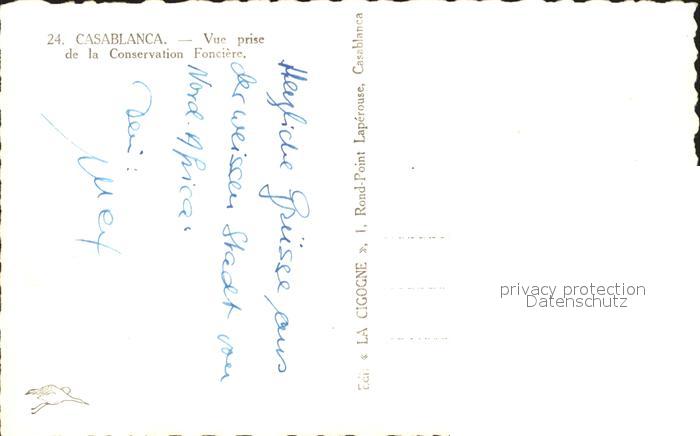 24. CASABLANCA. — Vue prise
de la Conservation Foncière.
Herzliche Grüsse aus
der weissen Stadt von
Nord. Africa.
Dein:
Max
Edit « LA CIGOGNE », 1, Rond-Point Lapérouse, Casablanca
privacy protection
Datenschutz